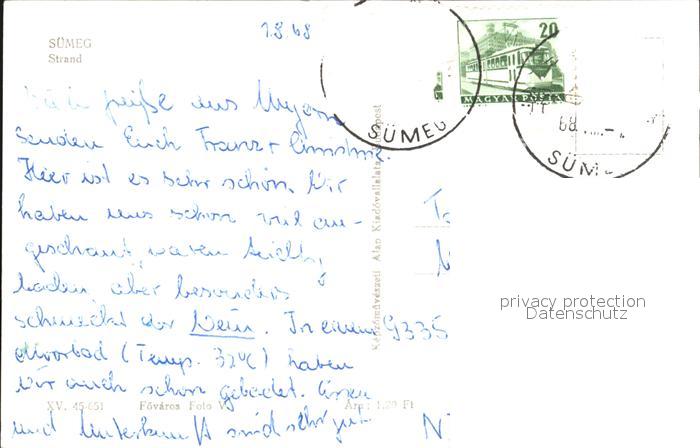 1.8.68
SÜMEG
Strand
20
MAGYAR POSTA
SÜMEG
68
SÜM
Grüße aus Ungarn
Senden Euch Franz + Christine.
Hier ist es sehr schön. Wir
haben uns schon viel an-
geschaut, waren
baden, aber besonders
schmeckt der Wein. In einem
Moorbad (Temp. 32°C) haben
Wir auch schon gebadet. Essen
und Unterkunft sind sehr gut
9335
Képzőművészeti Alap Kiadóvállalata, Budapest
privacy protection
Datenschutz
XV. 45-651 Főváros Foto V. Ára: 1.20 Ft